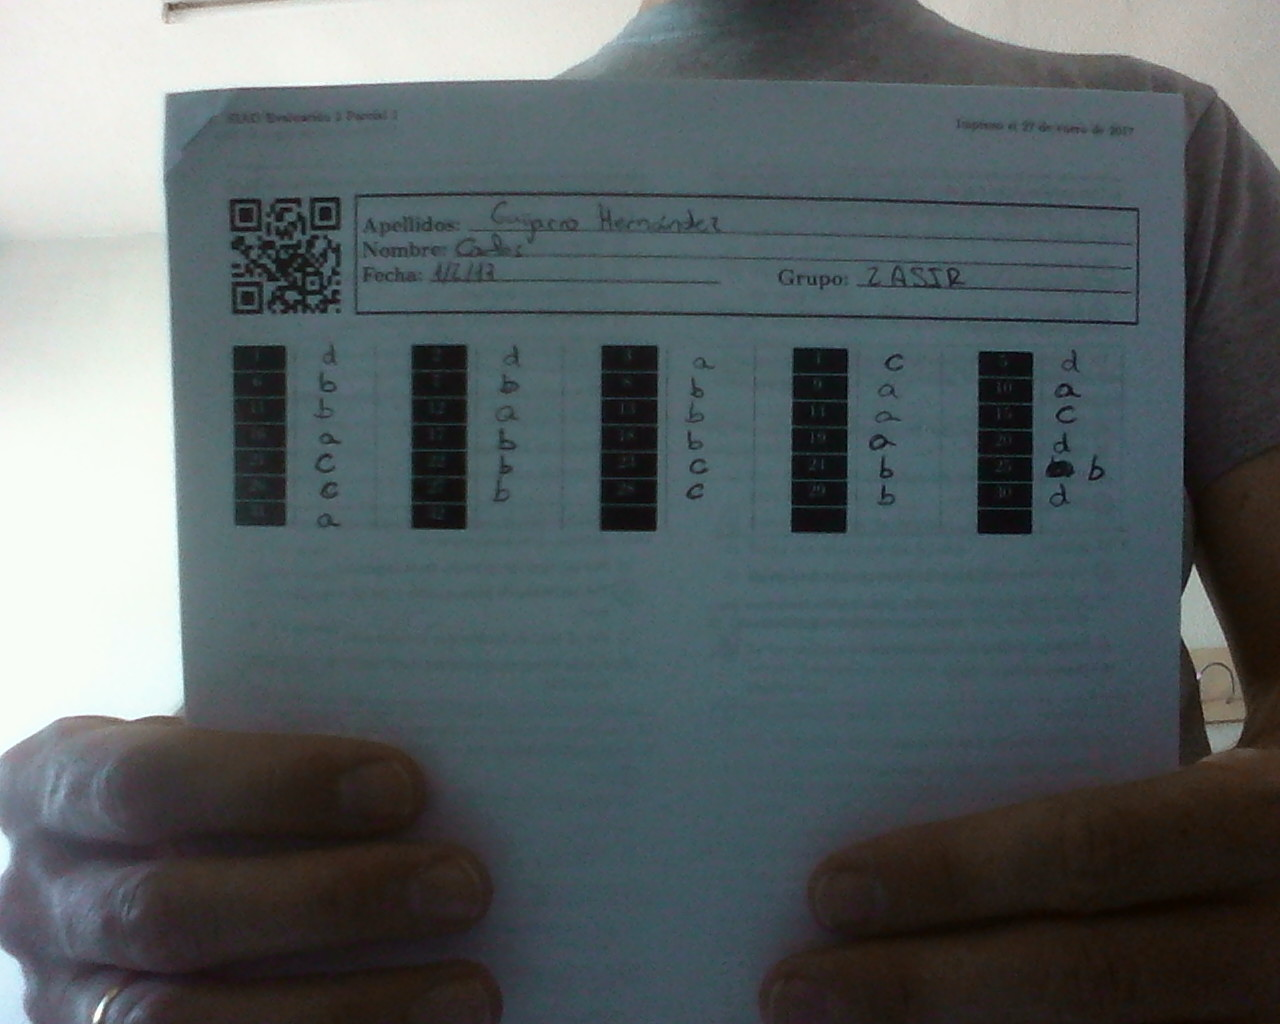 Evaluación 2 Parcial 1
Impreso el 27 de enero de 2017
Apellidos: Guijarro Hernández
Nombre: Carlos
Fecha: 1/2/17
Grupo: 2 ASIR
1 d 2 d 3 a 4 c 5 d
6 b 7 b 8 b 9 a 10 a
11 b 12 a 13 b 14 a 15 c
16 a 17 b 18 b 19 a 20 d
21 c 22 b 23 c 24 b 25 b
26 c 27 b 28 c 29 b 30 d
31 a 32